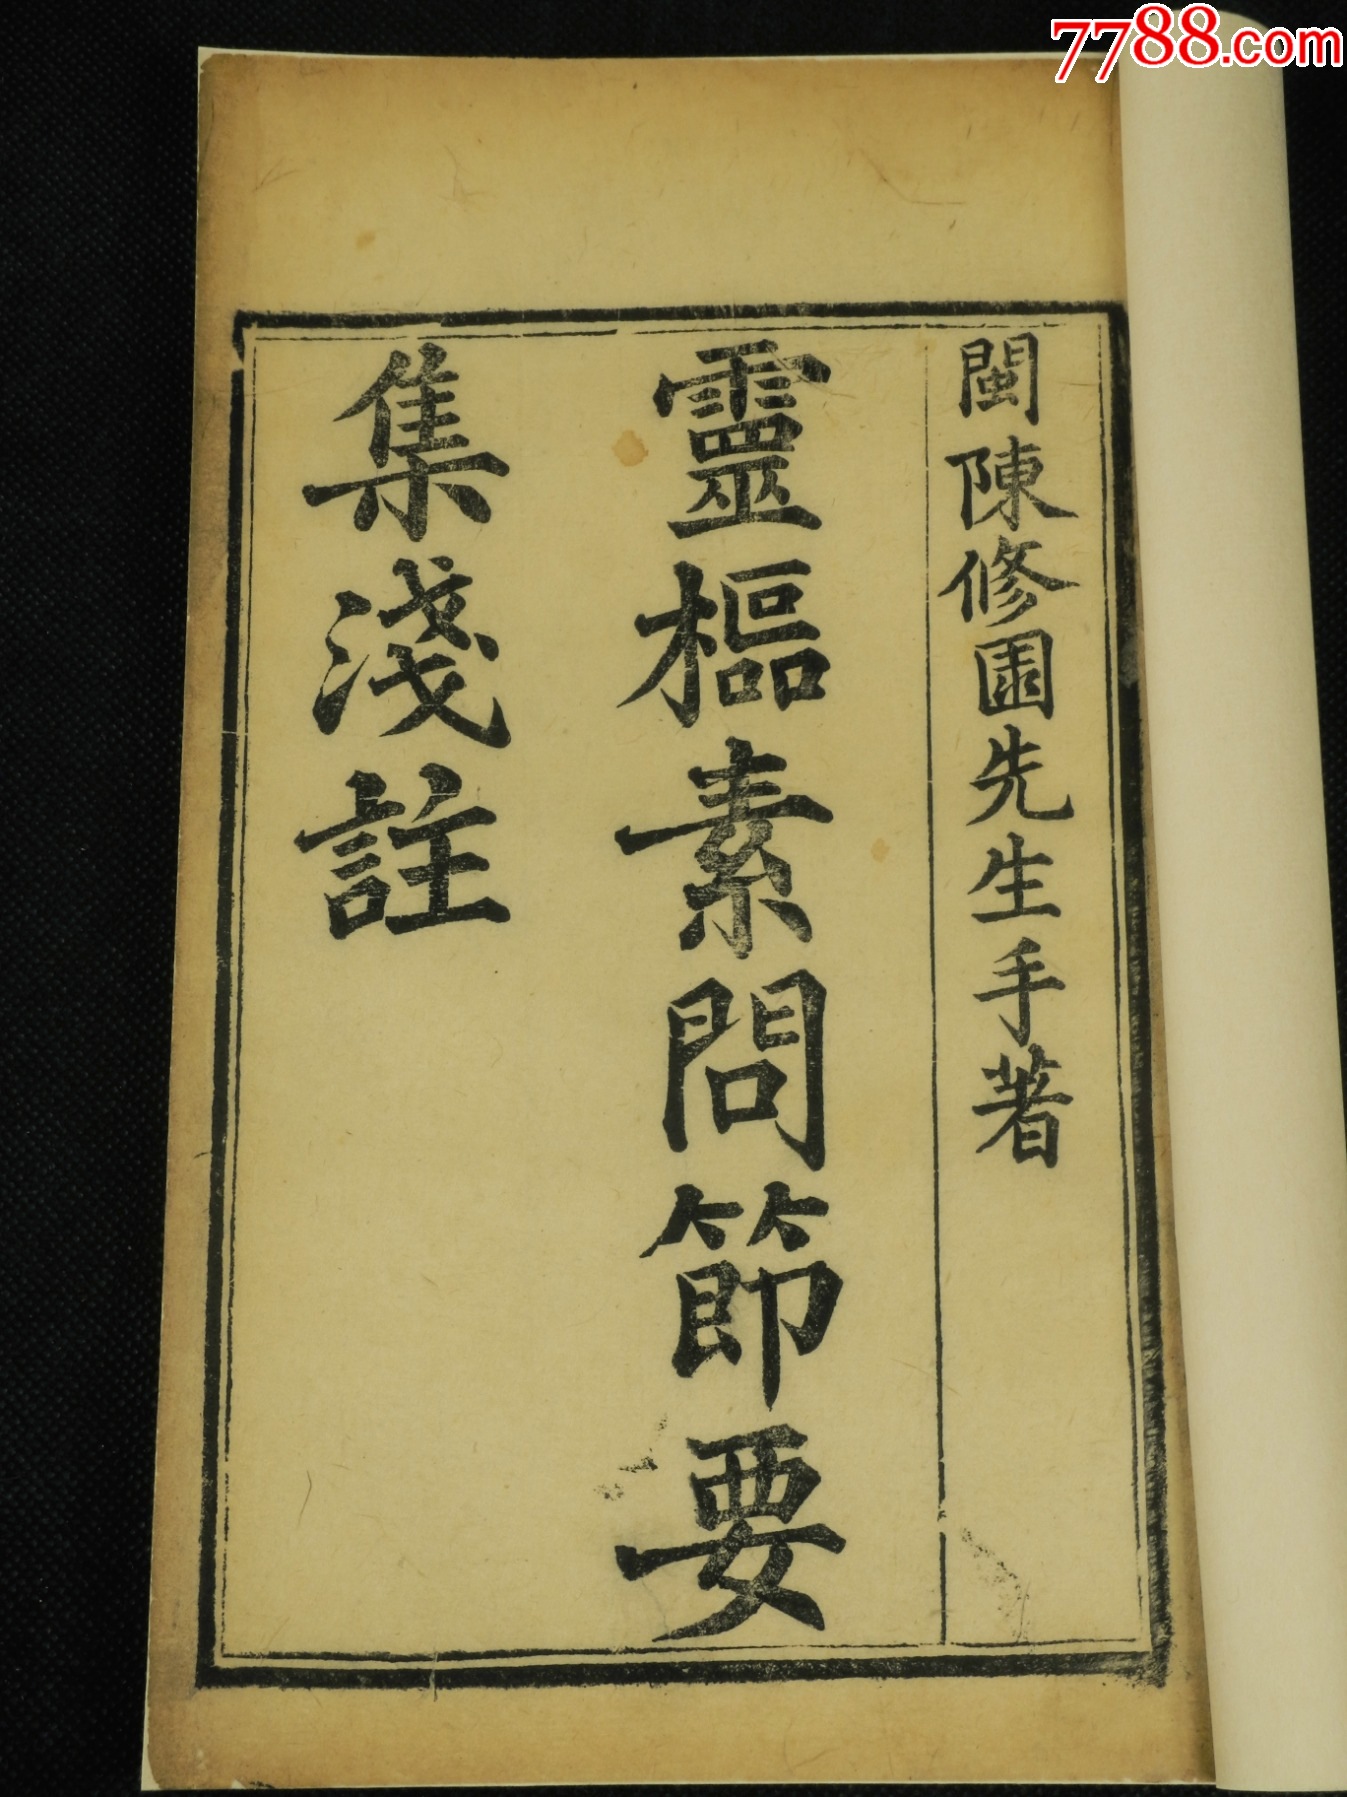 7788.com
閩陳修園先生手著
靈樞素問節要
集淺註